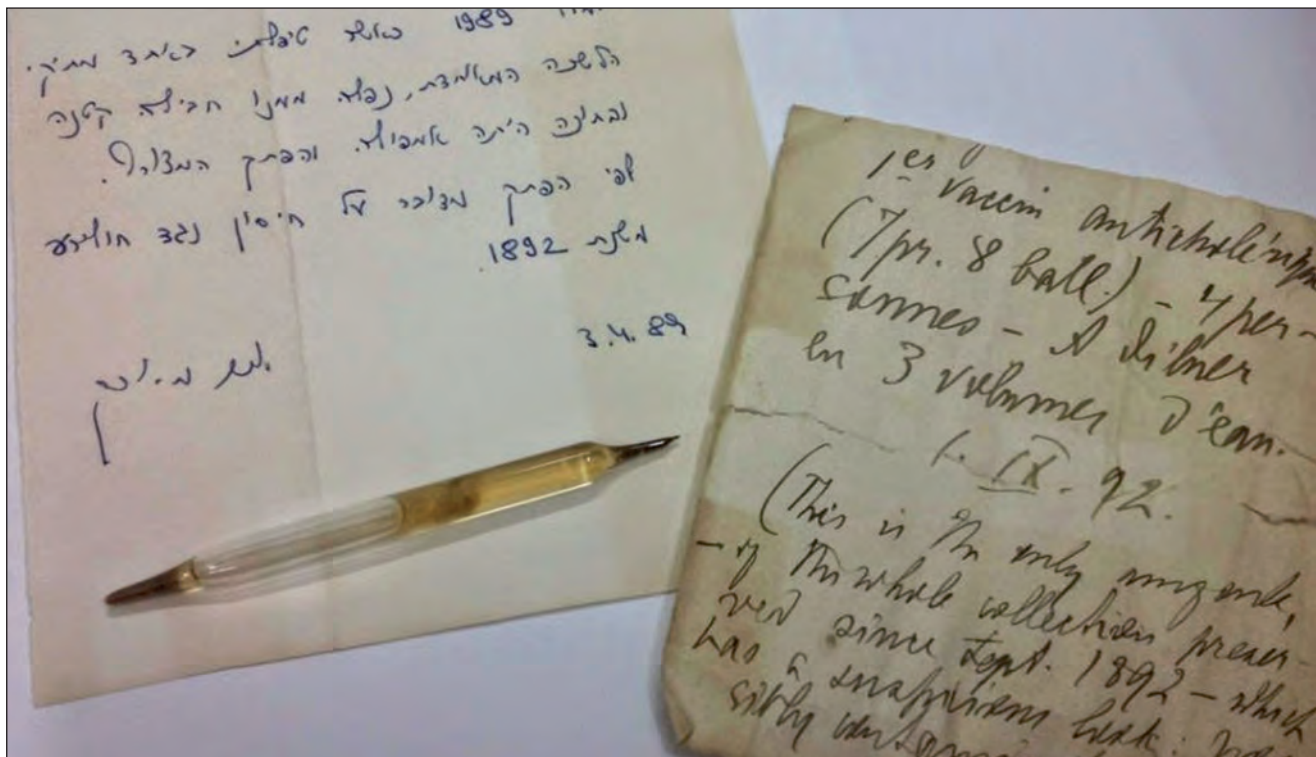 1989 כאשר טיפלתי באחד מתיקי
הלשכה המתאמדת, נפלה ממנו חבילה קטנה
ובתוכה היתה אמפולה והפתק המצורף.
לפי הפתק מדובר על חיסון נגד חולירע
משנת 1892.
3.4.89
1er vaccin anticholérique
(7 pr. 8 ball.) - 4 per-
sonnes - A diluer
en 3 volumes d'eau.
1. IX. 92.
(This is the only
- of the whole collection preser-
ved since Sept. 1892 - which
has a suspicious look:
sibly